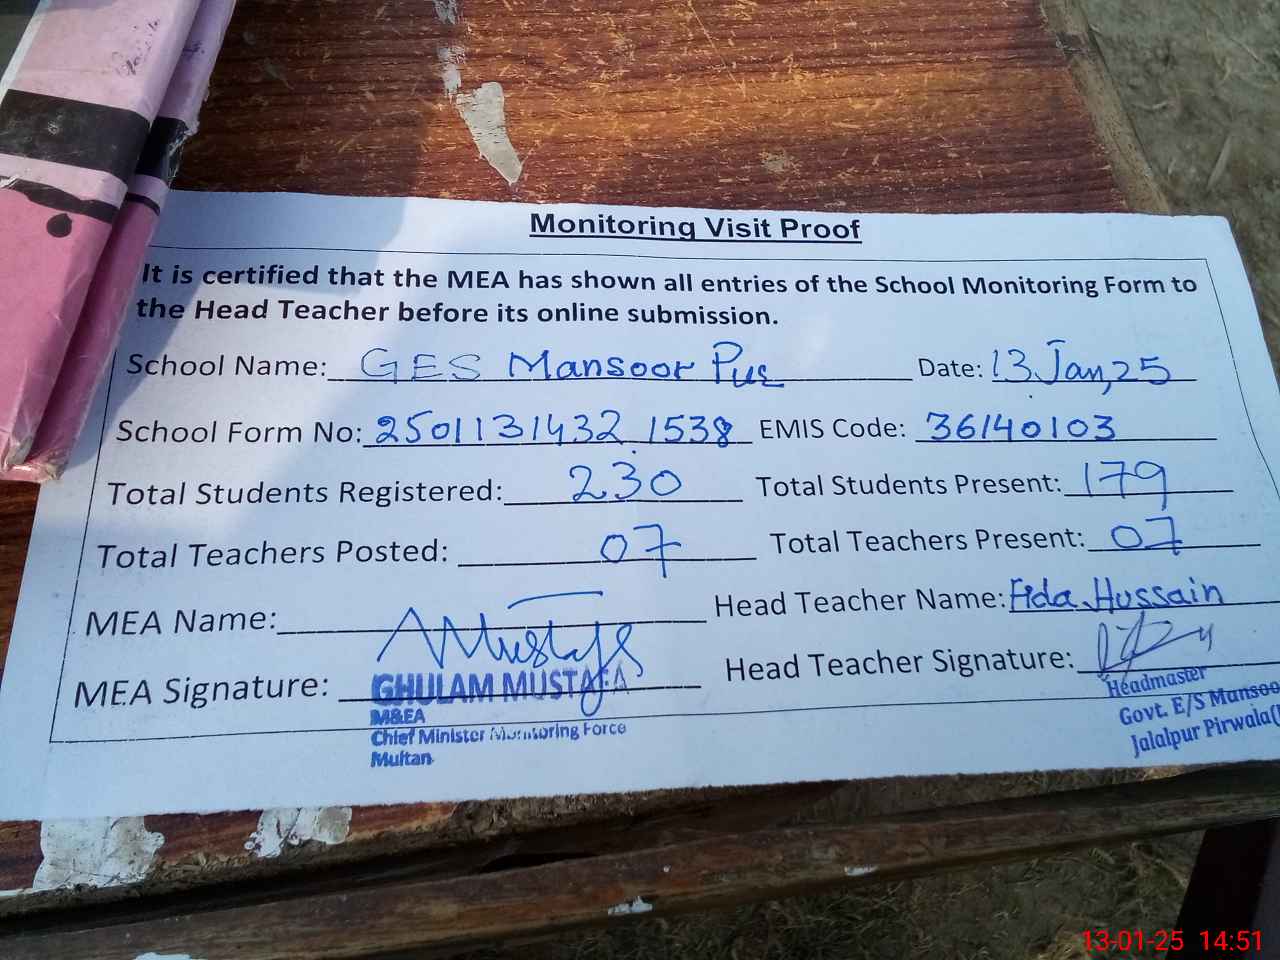 Monitoring Visit Proof
It is certified that the MEA has shown all entries of the School Monitoring Form to
the Head Teacher before its online submission.
School Name: GES Mansoor Pur Date: 13 Jan, 25
School Form No: 2501131432 1538 EMIS Code: 36140103
Total Students Registered: 230 Total Students Present: 179
Total Teachers Posted: 07 Total Teachers Present: 07
MEA Name: Head Teacher Name: Fida Hussain
MEA Signature: Mustafa Head Teacher Signature:
GHULAM MUSTAFA
M&EA
Chief Minister Monitoring Force
Multan
Headmaster
Govt. E/S Mansoo
Jalalpur Pirwala(
13-01-25 14:51